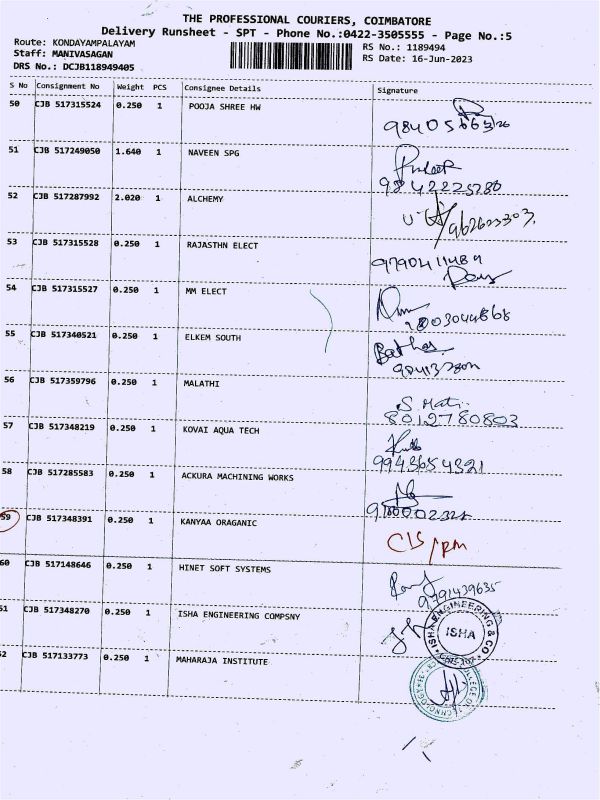 THE PROFESSIONAL COURIERS, COIMBATORE
Delivery Runsheet - SPT - Phone No.:0422-3505555 - Page No.:5
Route: KONDAYAMPALAYAM RS No.: 1189494
Staff: MANIVASAGAN RS Date: 16-Jun-2023
DRS No.: DCJB118949405
S No Consignment No Weight PCS Consignee Details Signature
50 CJB 517315524 0.250 1 POOJA SHREE HW
51 CJB 517249050 1.640 1 NAVEEN SPG
9842225280
52 CJB 517287992 2.020 1 ALCHEMY
53 CJB 517315528 0.250 1 RAJASTHN ELECT
54 CJB 517315527 0.250 1 MM ELECT
55 CJB 517340521 0.250 1 ELKEM SOUTH
56 CJB 517359796 0.250 1 MALATHI
8012780803
57 CJB 517348219 0.250 1 KOVAI AQUA TECH
9943654321
58 CJB 517285583 0.250 1 ACKURA MACHINING WORKS
59 CJB 517348391 0.250 1 KANYAA ORAGANIC
60 CJB 517148646 0.250 1 HINET SOFT SYSTEMS
9791439635
51 CJB 517348270 0.250 1 ISHA ENGINEERING COMPSNY
ISHA ENGINEERING & CO
ISHA
52 CJB 517133773 0.250 1 MAHARAJA INSTITUTE